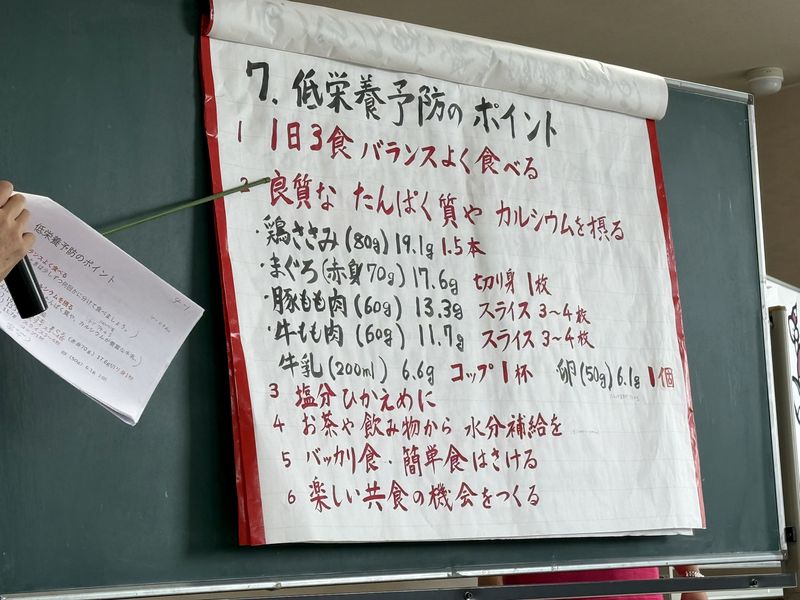 7. 低栄養予防のポイント
1 1日3食 バランスよく食べる
2 良質な たんぱく質や カルシウムを摂る
・鶏ささみ(80g) 19.1g 1.5本
・まぐろ(赤身70g) 17.6g 切り身 1枚
・豚もも肉(60g) 13.3g スライス 3~4枚
・牛もも肉(60g) 11.7g スライス 3~4枚
牛乳(200ml) 6.6g コップ1杯 卵(50g) 6.1g 1個
3 塩分ひかえめに
4 お茶や飲み物から 水分補給を
5 バッカリ食・簡単食はさける
6 楽しい共食の機会をつくる
低栄養予防のポイント
バランスよく食べる